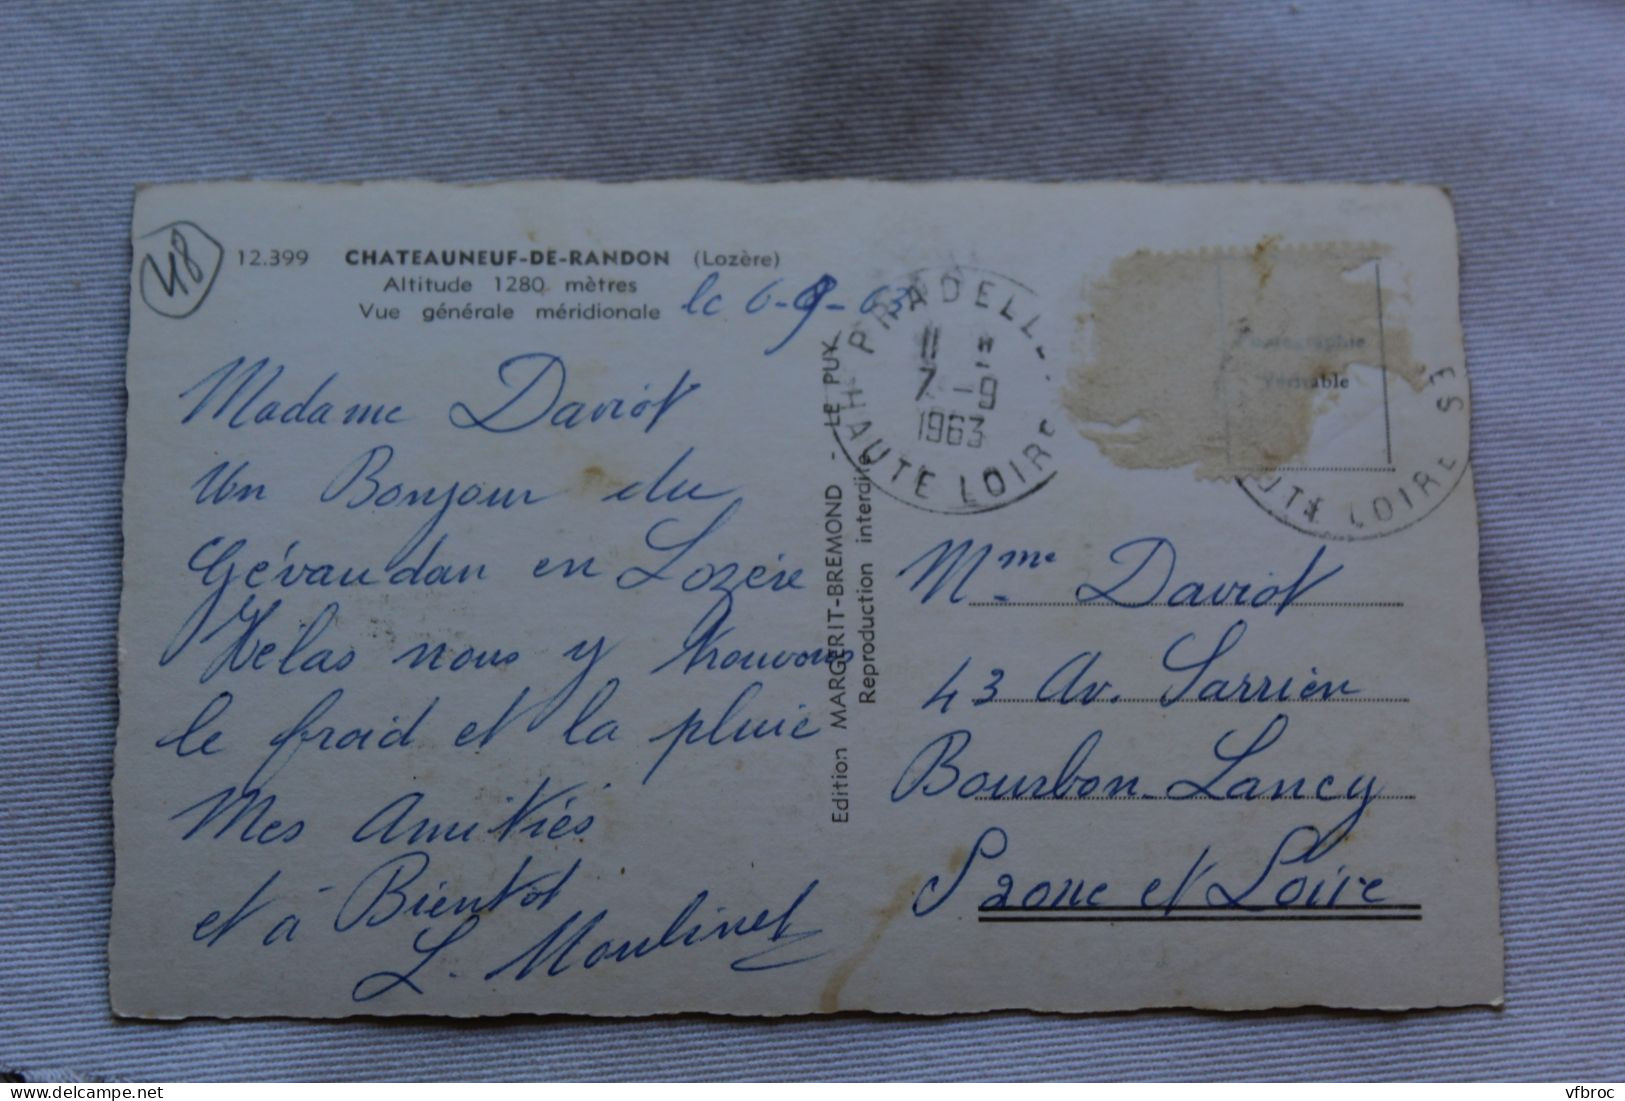 48
12.399 CHATEAUNEUF-DE-RANDON (Lozère)
Altitude 1280 mètres
Vue générale méridionale
le 6-9-63
Madame Daviot
Un Bonjour du
Gévaudan en Lozère
Hélas nous y trouvons
le froid et la pluie
Mes Amitiés
et à Bientot
L. Moulinet
Edition MARGERIT-BREMOND - LE PUY
Reproduction interdite
PRADELLE
11 H
7 - 9
1963
HAUTE LOIRE
Véritable
UTE LOIRE
Mme Daviot
43 Av. Sarrien
Bourbon-Lancy
Saone et Loire
vfbroc